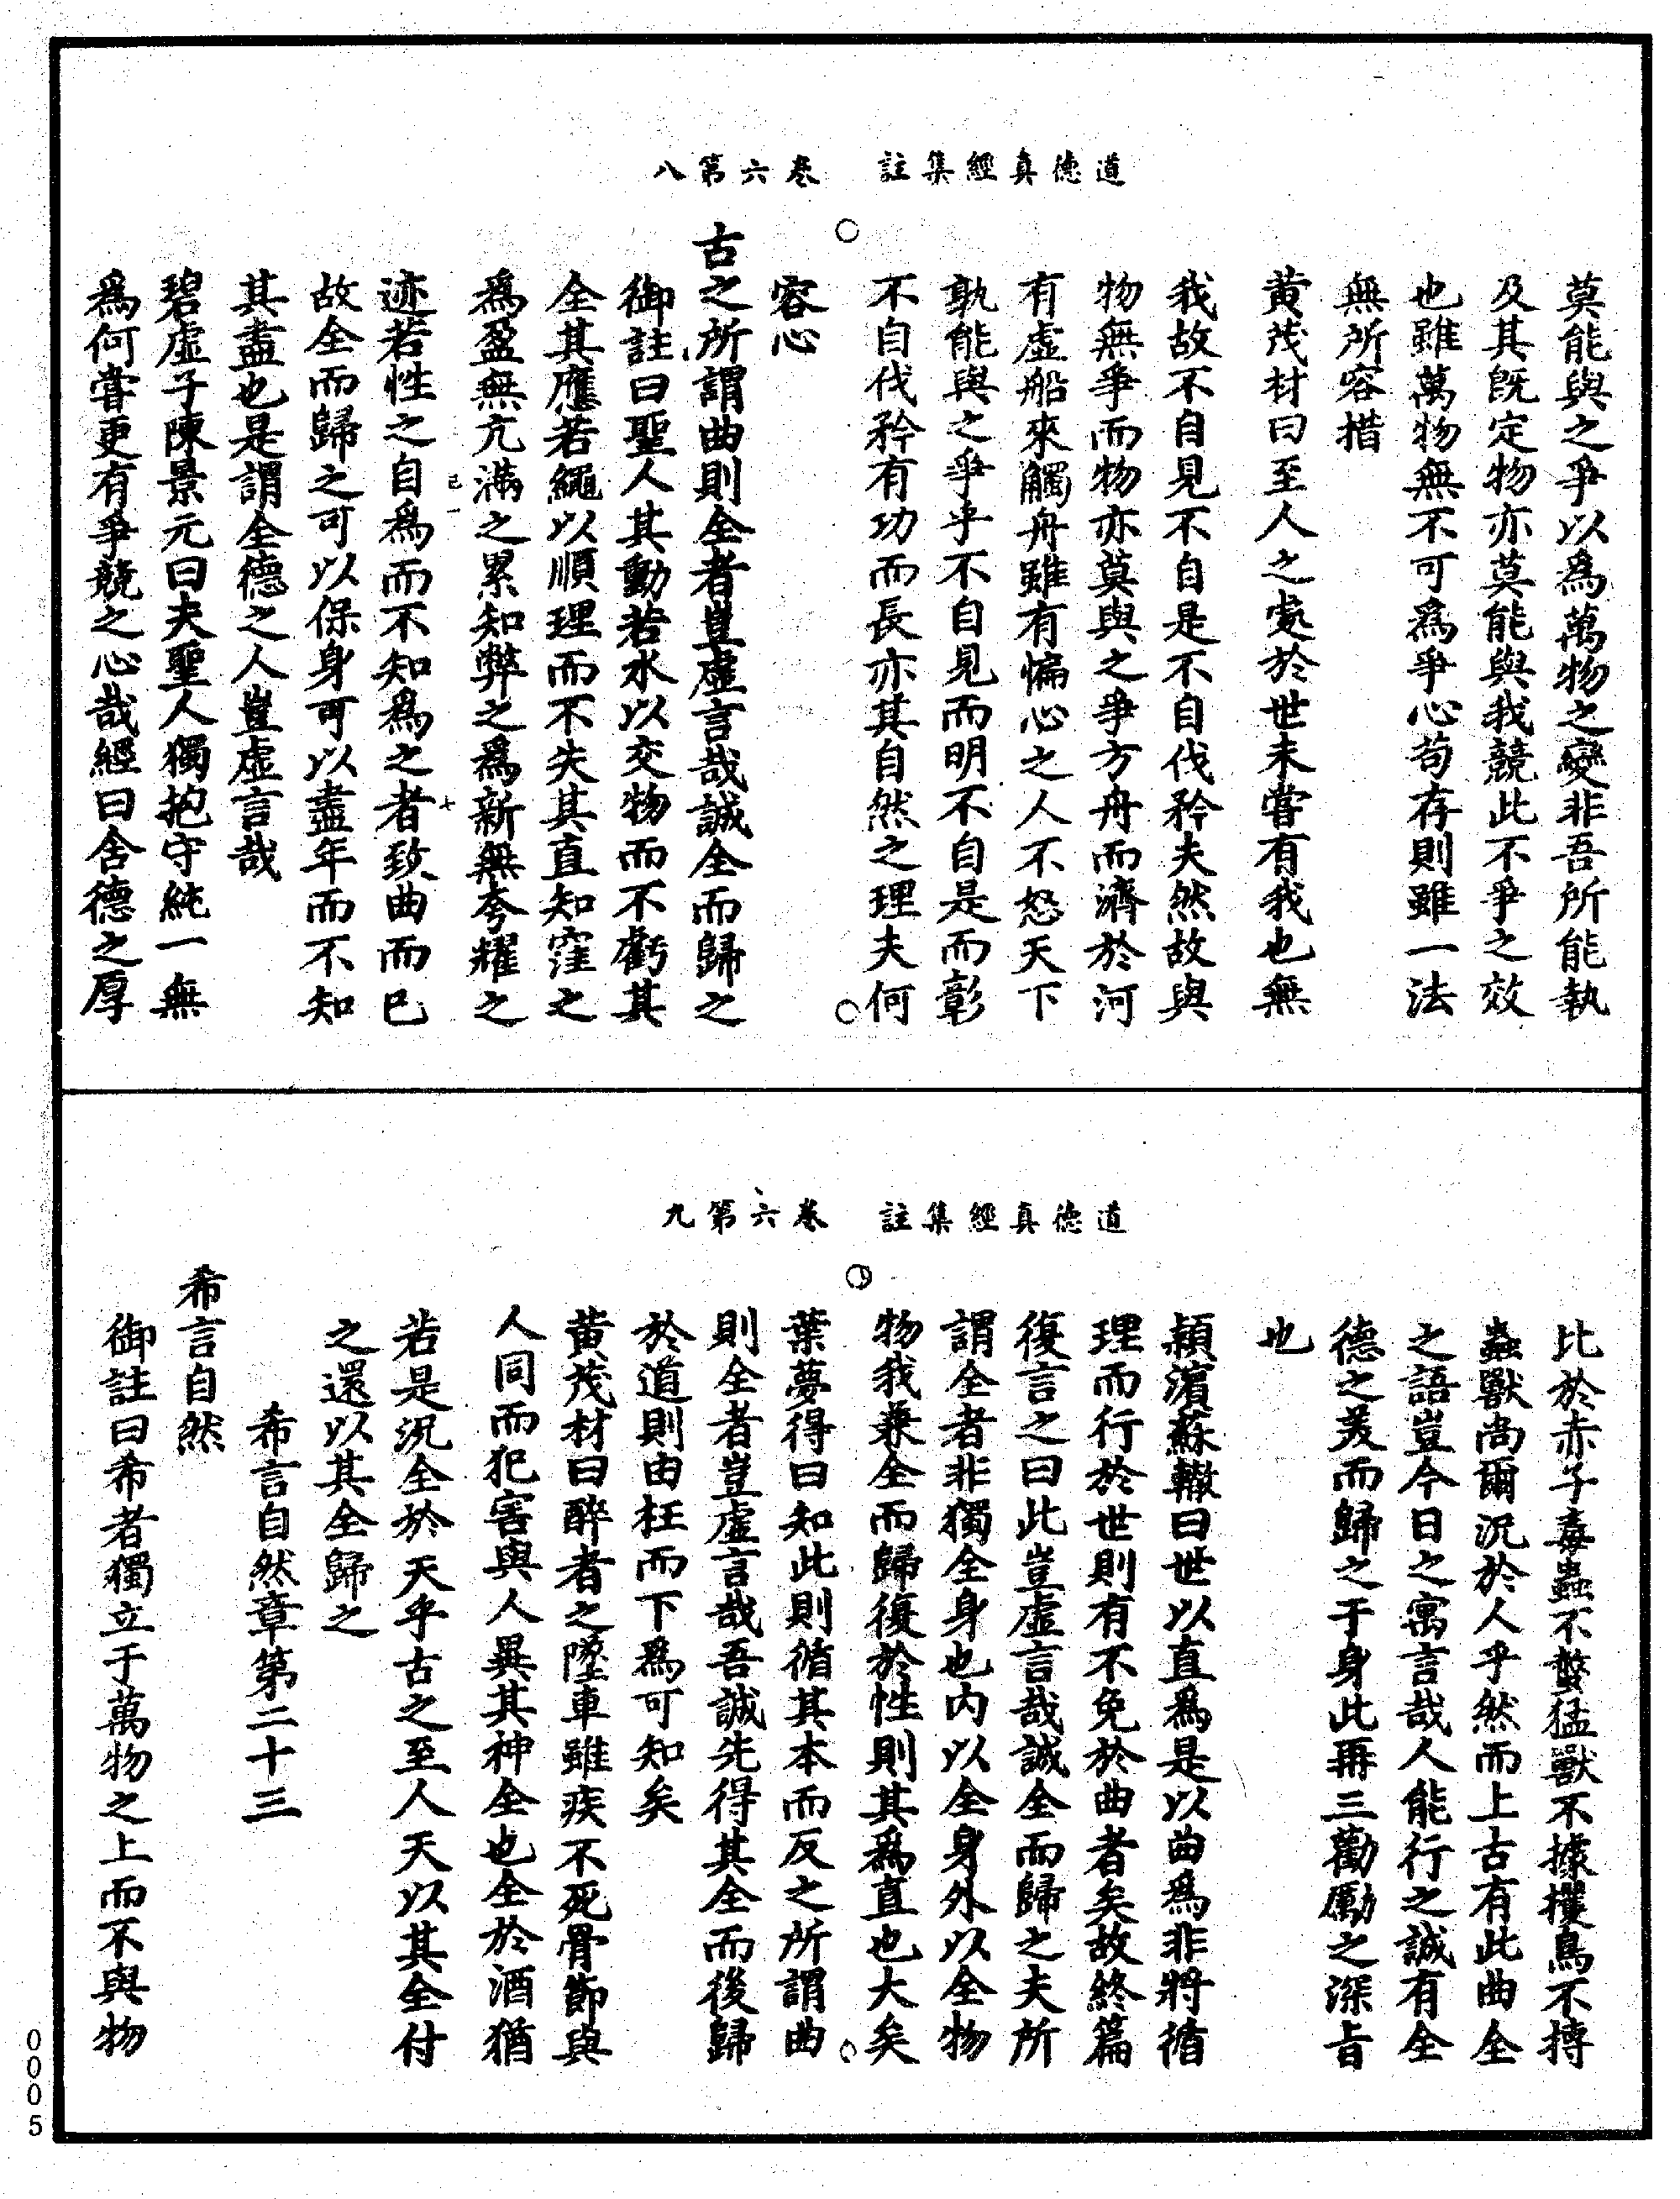 道德真經集註　卷六第八
莫能與之爭以爲萬物之變非吾所能執
及其旣定物亦莫能與我競此不爭之效
也雖萬物無不可爲爭心苟存則雖一法
無所容措
黃茂材曰至人之處於世未嘗有我也無
我故不自見不自是不自伐矜夫然故與
物無爭而物亦莫與之爭方舟而濟於河
有虛船來觸舟雖有惼心之人不怒天下
孰能與之爭乎不自見而明不自是而彰
不自伐矜有功而長亦其自然之理夫何
容心
古之所謂曲則全者豈虛言哉誠全而歸之
御註曰聖人其動若水以交物而不虧其
全其應若繩以順理而不失其直知窪之
爲盈無亢滿之累知弊之爲新無夸耀之
迹若性之自爲而不知爲之者致曲而已
故全而歸之可以保身可以盡年而不知
其盡也是謂全德之人豈虛言哉
碧虛子陳景元曰夫聖人獨抱守純一無
爲何嘗更有爭競之心哉經曰含德之厚
道德真經集註　卷六第九
比於赤子毒蟲不螫猛獸不據攫鳥不搏
蟲獸尚爾況於人乎然而上古有此曲全
之語豈今日之寓言哉人能行之誠有全
德之美而歸之于身此再三勸勵之深旨
也
潁濱蘇轍曰世以直爲是以曲爲非將循
理而行於世則有不免於曲者矣故終篇
復言之曰此豈虛言哉誠全而歸之夫所
謂全者非獨全身也內以全身外以全物
物我兼全而歸復於性則其爲直也大矣
葉夢得曰知此則循其本而反之所謂曲
則全者豈虛言哉吾誠先得其全而後歸
於道則由枉而下爲可知矣
黃茂材曰醉者之墜車雖疾不死骨節與
人同而犯害與人異其神全也全於酒猶
若是況全於天乎古之至人天以其全付
之還以其全歸之
希言自然章第二十三
希言自然
御註曰希者獨立于萬物之上而不與物
0005